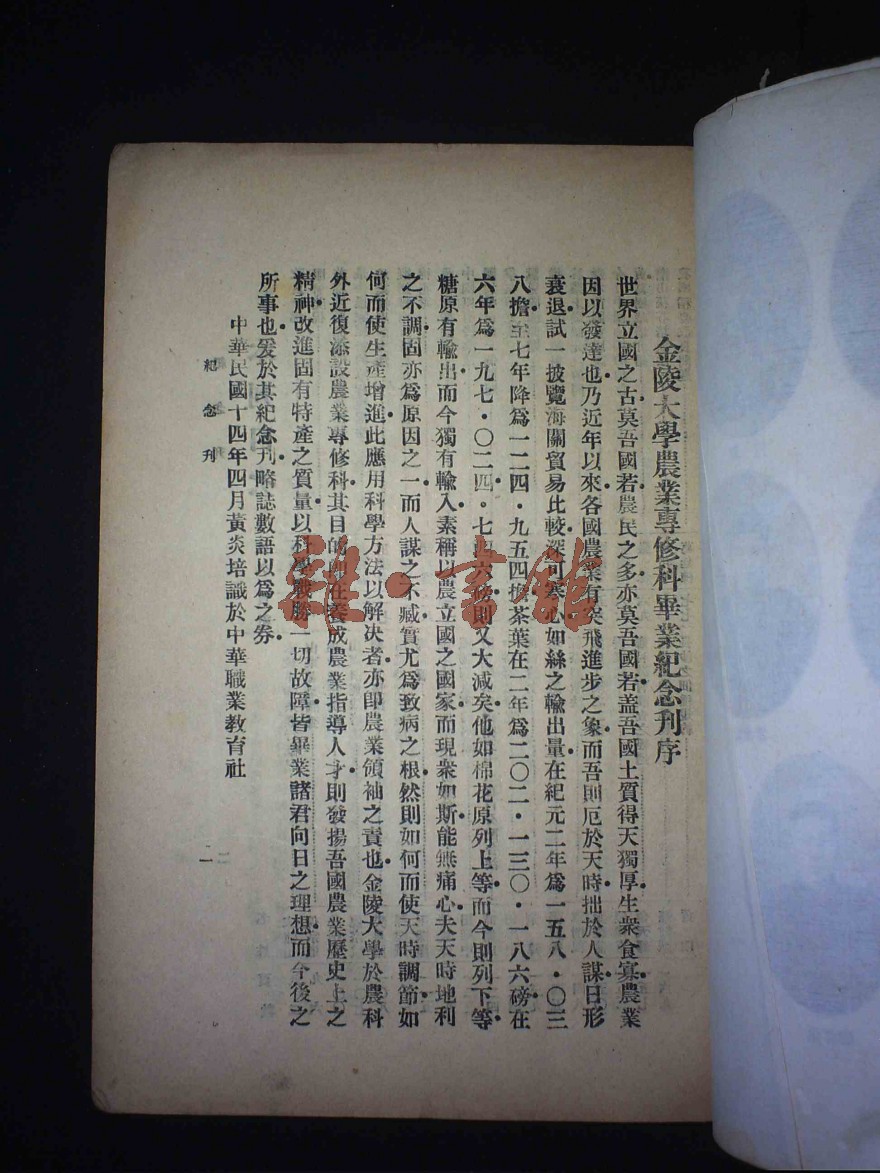 金陵大學農業專修科畢業紀念刊序
世界立國之古莫吾國若農民之多亦莫吾國若蓋吾國土質得天獨厚生衆食寡農業
因以發達也乃近年以來各國農業有突飛進步之象而吾則厄於天時拙於人謀日形
衰退試一披覽海關貿易比較深可寒心如絲之輸出量在紀元二年爲一五八・〇三
八擔至七年降爲一二四・九五四擔茶葉在二年爲二〇二・一三〇・一八六磅在
六年爲一九七・〇二四・七四六磅則又大減矣他如棉花原列上等而今則列下等
糖原有輸出而今獨有輸入素稱以農立國之國家而現衆如斯能無痛心夫天時地利
之不調固亦爲原因之一而人謀之不臧實尤爲致病之根然則如何而使天時調節如
何而使生產增進此應用科學方法以解決者亦即農業領袖之責也金陵大學於農科
外近復添設農業專修科其目的即在養成農業指導人才則發揚吾國農業歷史上之
精神改進固有特產之質量以科學戰勝一切故障皆畢業諸君向日之理想而今後之
所事也爰於其紀念刊略誌數語以爲之券
中華民國十四年四月黃炎培識於中華職業教育社
紀念刊
一
雜・書館